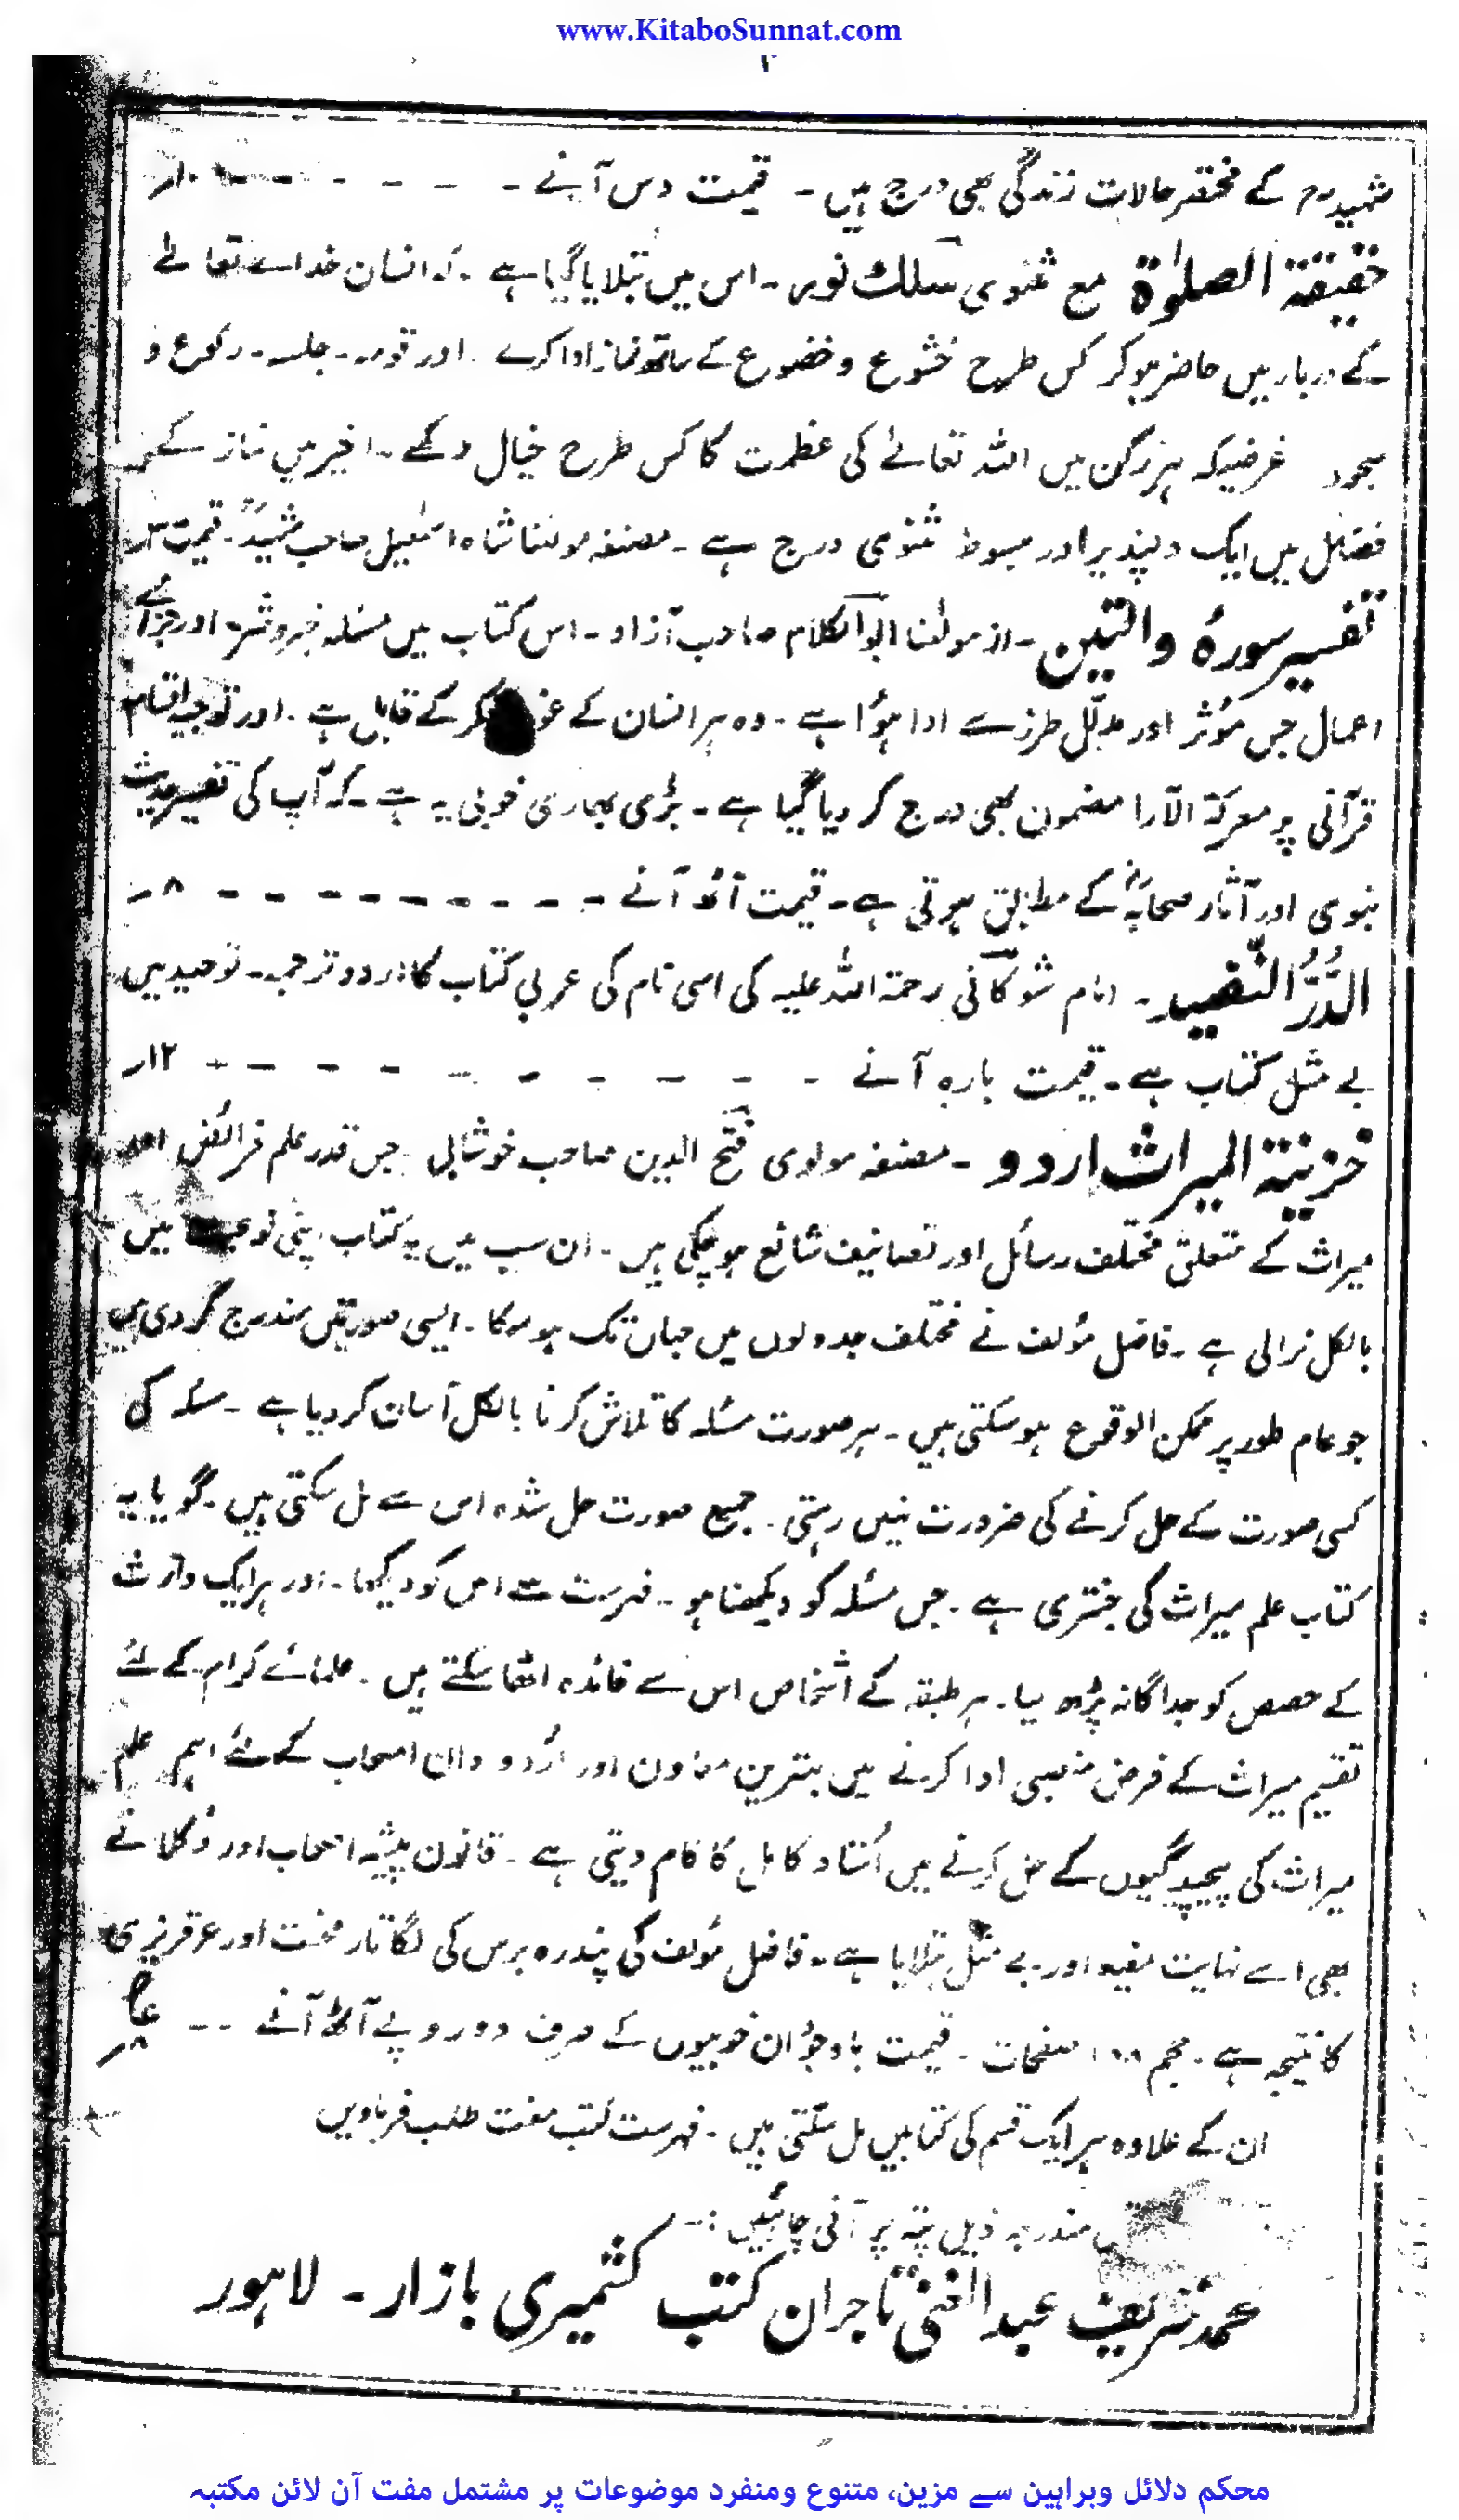 www.KitaboSunnat.com
۲
شہید رح کے مختصر حالات زندگی بھی درج ہیں ۔ قیمت دس آنے ۔ - - - - - - ۱۰ر
حقیقۃ الصلوٰۃ مع مثنوی سلک نور ۔ اس میں بتلایا گیا ہے ۔ کہ انسان خدائے تعالےٰ
کے دربار میں حاضر ہو کر کس طرح خشوع و خضوع کے ساتھ نماز ادا کرے ۔ اور قومہ ۔ جلسہ ۔ رکوع و
سجود غرضیکہ ہر رکن میں اللہ تعالےٰ کی عظمت کا کس طرح خیال رکھے ۔ اخیر میں نماز کے
فضائل میں ایک دلپذیر اور مبسوط مثنوی درج ہے ۔ مصنفہ مولٰنا شاہ اسمٰعیل صاحب شہیدؒ ۔ قیمت
تفسیر سورۂ والتین ۔ از مولٰنا ابوالکلام صاحب آزاد ۔ اس کتاب میں مسئلہ خیر و شر ۔ اور جزائے
اعمال جس مؤثر اور مدلّل طرز سے ادا ہوُا ہے ۔ وہ ہر انسان کے کے قابل ہے ۔ اور توجیہ اقسام
قرآنی پر معرکۃ الآرا مضمون بھی درج کر دیا گیا ہے ۔ بڑی بھاری خوبی یہ ہے ۔ کہ آپ کی تفسیر حدیث
نبوی اور آثار صحابہؓ کے مطابق ہوتی ہے ۔ قیمت آٹھ آنے - - - - - - - - - ۸ر
الدُّرُّ النَّضِید ۔ امام شوکانی رحمۃ اللہ علیہ کی اسی نام کی عربی کتاب کا اردو ترجمہ ۔ توحید میں
بے مثل کتاب ہے ۔ قیمت بارہ آنے - - - - - - - - - ۱۲ر
خزینۃ المیراث اردو ۔ مصنفہ مولوی فتح الدین صاحب خوشابی ۔ جس قدر علم فرائض اور
میراث کے متعلق مختلف رسائل اور تصانیف شائع ہو چکی ہیں ۔ ان سب میں یہ کتاب اپنی نوعیت میں
بالکل نرالی ہے ۔ فاضل مؤلف نے مختلف جدولوں میں جہاں تک ہو سکا ۔ ایسی صورتیں مندرج کر دی ہیں
جو عام طور پر ممکن الوقوع ہو سکتی ہیں ۔ ہر صورت مسئلہ کا تلاش کرنا بالکل آسان کر دیا ہے ۔ مسئلہ کی
کسی صورت کے حل کرنے کی ضرورت نہیں رہتی ۔ جمیع صورت حل شدہ اس سے مل سکتی ہیں ۔ گویا یہ
کتاب علم میراث کی جنتری ہے ۔ جس مسئلہ کو دیکھنا ہو ۔ فہرست سے اس کو دیکھا ۔ اور ہر ایک وارث
کے حصص کو جداگانہ پڑھ لیا ۔ ہر طبقہ کے اشخاص اس سے فائدہ اٹھا سکتے ہیں ۔ علمائے کرام کے لئے
تقسیم میراث کے فرض منصبی ادا کرنے میں بہترین معاون اور اُردو دان اصحاب کے لئے اہم علم
میراث کی پیچیدگیوں کے حل کرنے میں اُستاد کامل کا کام دیتی ہے ۔ قانون پیشہ اصحاب اور وُکلا نے
بھی اسے نہایت مفید اور بے مثل بتلایا ہے ۔ فاضل مؤلف کی پندرہ برس کی لگاتار محنت اور عرقریزی
کا نتیجہ ہے ۔ حجم صفحات ۔ قیمت باوجود ان خوبیوں کے صرف دو روپے آٹھ آنے - -
ان کے علاوہ ہر ایک قسم کی کتابیں مل سکتی ہیں ۔ فہرست کتب مفت طلب فرماویں
مندرجہ ذیل پتہ پر آنی چاہئیں :۔
محمد شریف عبدالغنی تاجران کتب کشمیری بازار ۔ لاہور
محکم دلائل وبراہین سے مزین، متنوع ومنفرد موضوعات پر مشتمل مفت آن لائن مکتبہ